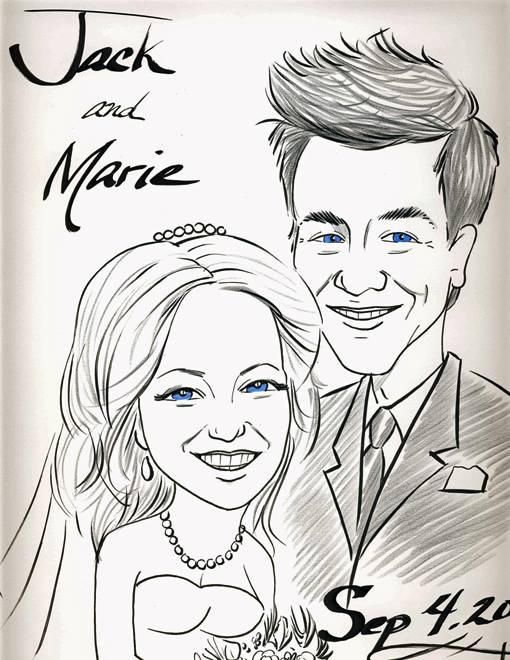 Jack
and
Marie
Sep 4.20